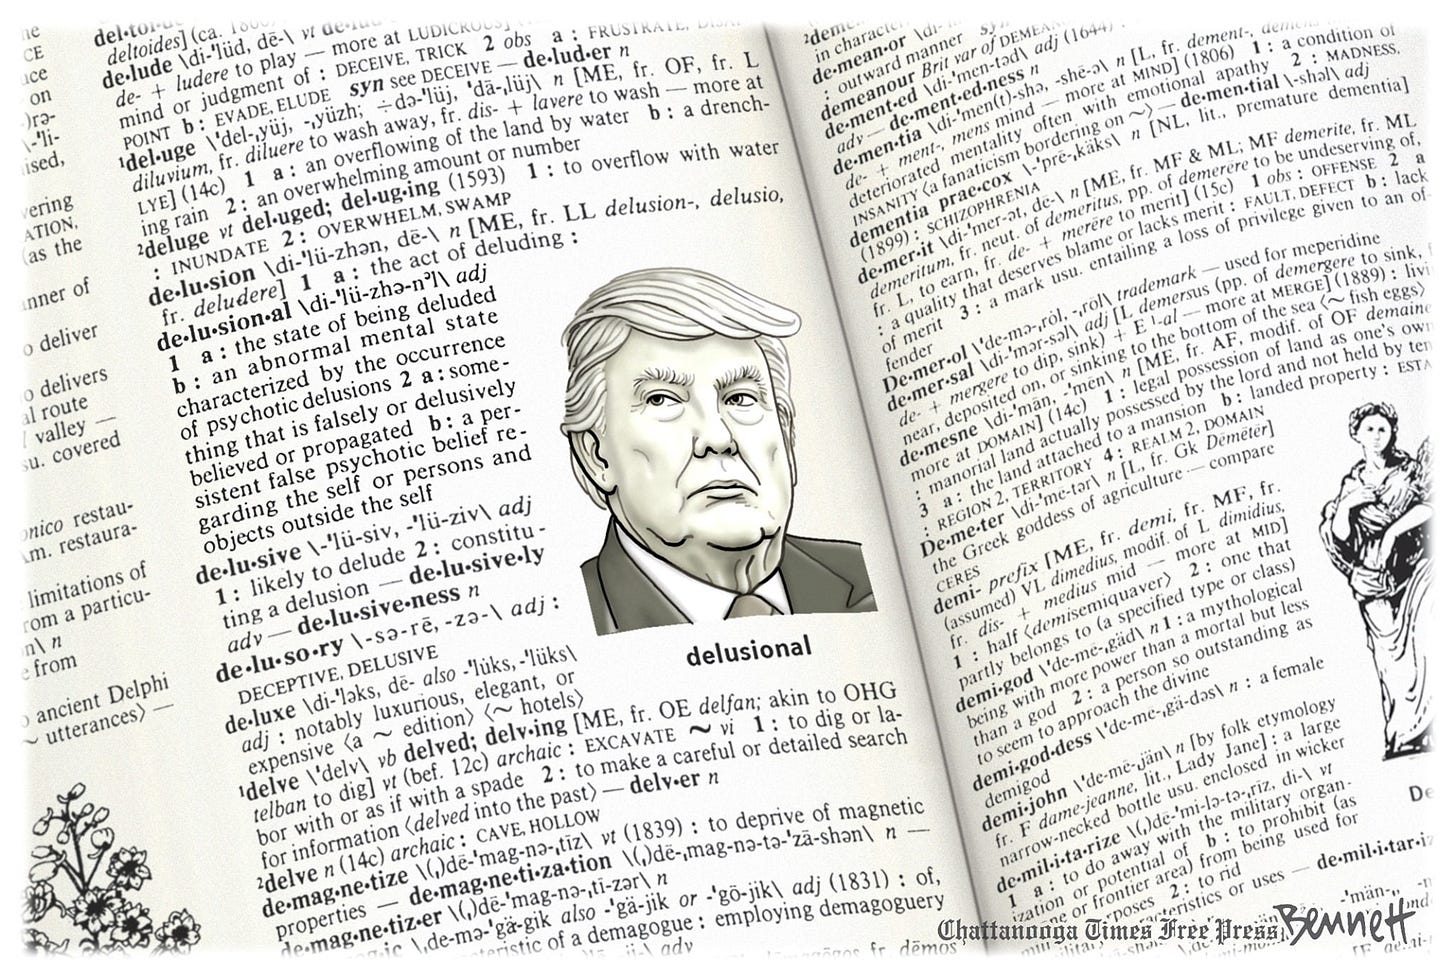 CE
ace
on
)rə-
\-'li-
ised,
vering
ATION,
(as the
anner of
o deliver
o delivers
al route
l valley —
su. covered
onico restau-
\m. restaura-
limitations of
rom a particu-
n\ n
e from
o ancient Delphi
~ utterances⟩ —
deltoides] (ca.
de·lude \di-'lüd, dē-\ vt
de- + ludere to play — more at LUDICROUS]
mind or judgment of : DECEIVE, TRICK 2 obs a : FRUSTRATE,
POINT b : EVADE, ELUDE syn see DECEIVE — de·lud·er n
¹del·uge \'del-ˌyüj, -ˌyüzh; ÷də-'lüj, 'dā-ˌlüj\ n [ME, fr. OF, fr. L
diluvium, fr. diluere to wash away, fr. dis- + lavere to wash — more at
LYE] (14c) 1 a : an overflowing of the land by water b : a drench-
ing rain 2 : an overwhelming amount or number
²deluge vt del·uged; del·ug·ing (1593) 1 : to overflow with water
: INUNDATE 2 : OVERWHELM, SWAMP
de·lu·sion \di-'lü-zhən, dē-\ n [ME, fr. LL delusion-, delusio,
fr. deludere] 1 a : the act of deluding :
de·lu·sion·al \di-'lü-zhə-nᵊl\ adj
1 a : the state of being deluded
b : an abnormal mental state
characterized by the occurrence
of psychotic delusions 2 a : some-
thing that is falsely or delusively
believed or propagated b : a per-
sistent false psychotic belief re-
garding the self or persons and
objects outside the self
de·lu·sive \-'lü-siv, -'lü-ziv\ adj
1 : likely to delude 2 : constitu-
ting a delusion — de·lu·sive·ly
adv — de·lu·sive·ness n
de·lu·so·ry \-sə-rē, -zə-\ adj :
DECEPTIVE, DELUSIVE
de·luxe \di-'ləks, dē- also -'lüks, -'lüks\
adj : notably luxurious, elegant, or
expensive ⟨a ~ edition⟩ ⟨~ hotels⟩
¹delve \'delv\ vb delved; delv·ing [ME, fr. OE delfan; akin to OHG
telban to dig] vt (bef. 12c) archaic : EXCAVATE ~ vi 1 : to dig or la-
bor with or as if with a spade 2 : to make a careful or detailed search
for information ⟨delved into the past⟩ — delv·er n
²delve n (14c) archaic : CAVE, HOLLOW
de·mag·ne·tize \(ˌ)dē-'mag-nə-ˌtīz\ vt (1839) : to deprive of magnetic
properties — de·mag·ne·ti·za·tion \(ˌ)dē-ˌmag-nə-tə-'zā-shən\ n —
de·mag·ne·tiz·er \(ˌ)dē-'mag-nə-ˌtī-zər\ n
\ˌde-mə-'gä-gik also -'gä-jik or -'gō-jik\ adj (1831) : of,
of a demagogue : employing demagoguery
delusional
in character
de·mean·or \di-
: outward manner syn
demeanour Brit var of DEMEANOR
de·ment·ed \di-'men-təd\ adj (1644)
adv — de·ment·ed·ness n
de·men·tia \di-'men(t)-shə, -shē-ə\ n [L, fr. dement-,
de- + ment-, mens mind — more at MIND] (1806) 1 : a condition of
deteriorated mentality often with emotional apathy 2 : MADNESS,
INSANITY ⟨a fanaticism bordering on ~⟩ — de·men·tial \-shəl\ adj
dementia prae·cox \-'prē-ˌkäks\ n [NL, lit., premature dementia]
(1899) : SCHIZOPHRENIA
de·mer·it \di-'mer-ət, dē-\ n [ME, fr. MF & ML; MF demerite, fr. ML
demeritum, fr. neut. of demeritus, pp. of demerēre to be undeserving of,
fr. L, to earn, fr. de- + merēre to merit] (15c) 1 obs : OFFENSE 2 a
: a quality that deserves blame or lacks merit : FAULT, DEFECT b : lack
of merit 3 : a mark usu. entailing a loss of privilege given to an of-
fender
De·mer·ol \'de-mə-ˌrȯl, -ˌrōl\ trademark — used for meperidine
de·mer·sal \di-'mər-səl\ adj [L demersus (pp. of demergere to sink, f
de- + mergere to dip, sink) + E ¹-al — more at MERGE] (1889) : livi
near, deposited on, or sinking to the bottom of the sea ⟨~ fish eggs⟩
de·mesne \di-'mān, -'mēn\ n [ME, fr. AF, modif. of OF demaine
more at DOMAIN] (14c) 1 : legal possession of land as one's own
: manorial land actually possessed by the lord and not held by ten
3 a : the land attached to a mansion b : landed property : ESTA
: REGION 2, TERRITORY 4 : REALM 2, DOMAIN
De·me·ter \di-'me-tər\ n [L, fr. Gk Dēmētēr]
the Greek goddess of agriculture — compare
CERES
demi- prefix [ME, fr. demi, fr. MF, fr.
(assumed) VL dimedius, modif. of L dimidius,
fr. dis- + medius mid — more at MID]
1 : half ⟨demisemiquaver⟩ 2 : one that
partly belongs to (a specified type or class)
demi·god \'de-mē-ˌgäd\ n 1 : a mythological
being with more power than a mortal but less
than a god 2 : a person so outstanding as
to seem to approach the divine
demi·god·dess \'de-mē-ˌgä-dəs\ n : a female
demigod
demi·john \'de-mē-ˌjän\ n [by folk etymology
fr. F dame-jeanne, lit., Lady Jane] : a large
narrow-necked bottle usu. enclosed in wicker
de·mil·i·ta·rize \(ˌ)dē-'mi-lə-tə-ˌrīz, di-\ vt
1 a : to do away with the military organ-
ization or potential of b : to prohibit (as
a zone or frontier area) from being used for
2 : to rid
or uses — de·mil·i·tar·iz
De
Chattanooga Times Free Press
Bennett